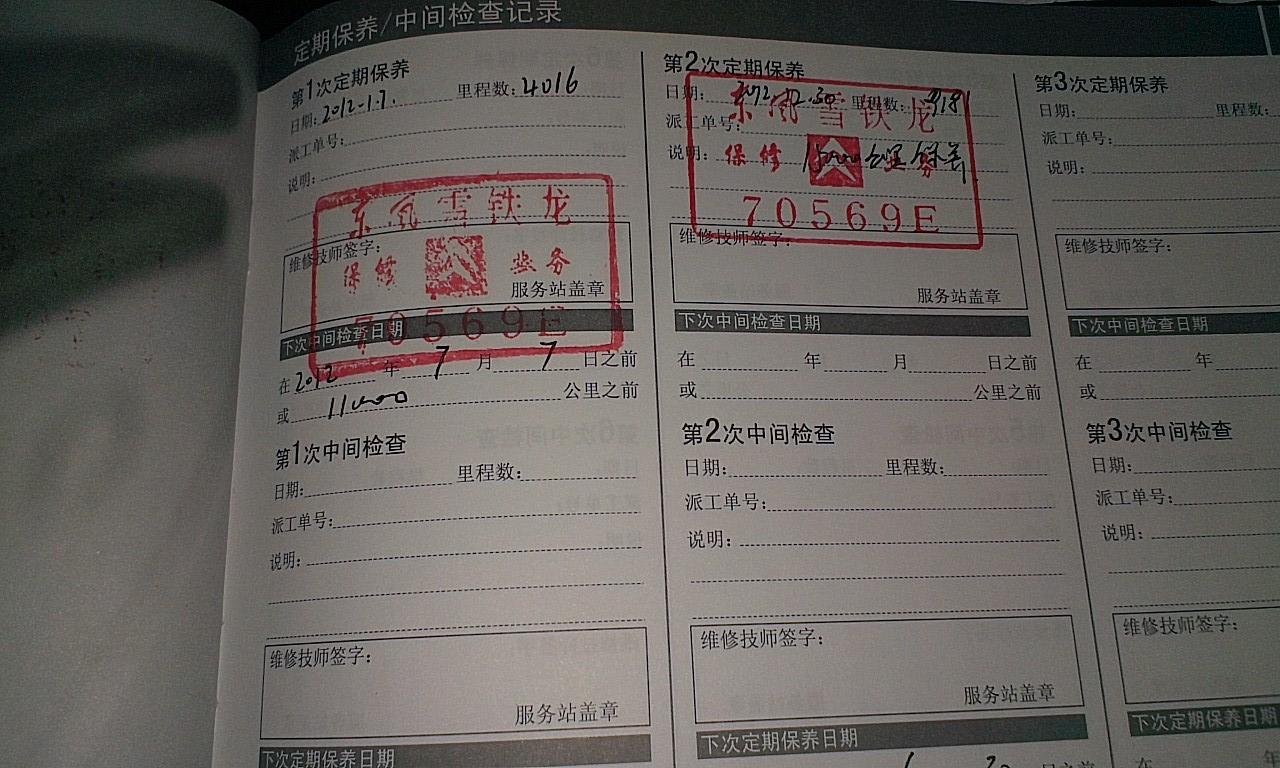 定期保养/中间检查记录
第1次定期保养
日期: 2012-1.7. 里程数: 4016
派工单号:
说明:
东风雪铁龙
维修技师签字:
保修 业务
服务站盖章
70569E
下次中间检查日期
在 2012 年 7 月 7 日之前
或 11000 公里之前
第1次中间检查
日期: 里程数:
派工单号:
说明:
维修技师签字:
服务站盖章
下次定期保养日期
第2次定期保养
日期: 里程数:
东风雪铁龙
派工单号:
说明: 15000公里保养
保修
70569E
维修技师签字:
服务站盖章
下次中间检查日期
在 年 月 日之前
或 公里之前
第2次中间检查
日期: 里程数:
派工单号:
说明:
维修技师签字:
服务站盖章
下次定期保养日期
第3次定期保养
日期: 里程数:
派工单号:
说明:
维修技师签字:
下次中间检查日期
在 年
或
第3次中间检查
日期:
派工单号:
说明:
维修技师签字:
下次定期保养日期
在 年